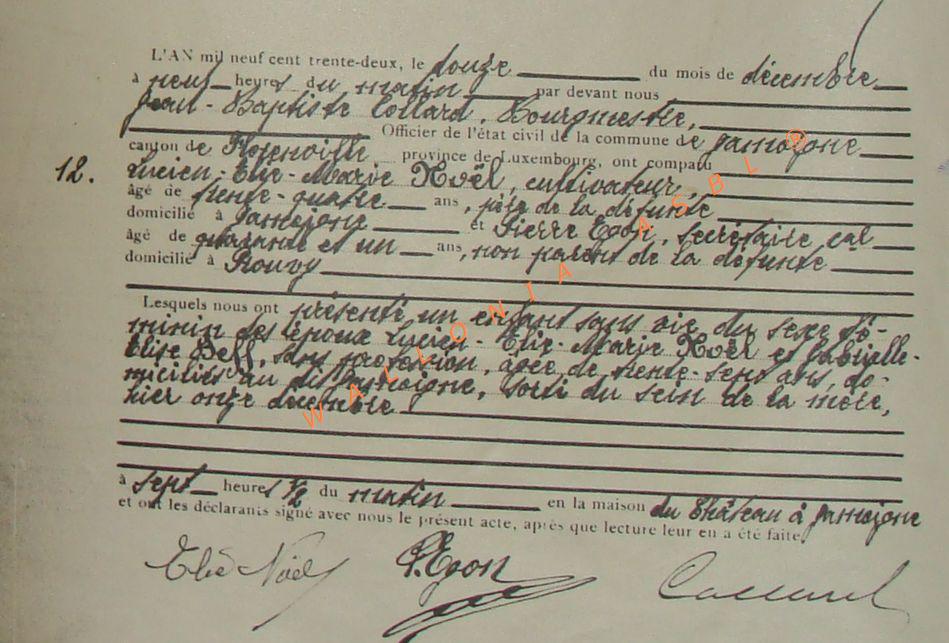 L'AN mil neuf cent trente-deux, le douze du mois de décembre
à neuf heures du matin par devant nous
Jean-Baptiste Collard, Bourgmestre,
Officier de l'état civil de la commune de Jamoigne
canton de Florenville, province de Luxembourg, ont comparu
12. Lucien-Elie-Marie Noël, cultivateur,
âgé de trente-quatre ans, père de la défunte
domicilié à Jamoigne et Pierre Egon, secrétaire cal
âgé de quarante et un ans, non parent de la défunte
domicilié à Rouvy
Lesquels nous ont présenté un enfant sans vie du sexe fé-
minin des époux Lucien-Elie-Marie Noël et Gabrielle-
Elise Dell, sans profession, âgée de trente-sept ans, do-
miciliés au dit Jamoigne, sorti du sein de la mère,
hier onze décembre
à sept heures 1/2 du matin en la maison du Château à Jamoigne
et ont les déclarants signé avec nous le présent acte, après que lecture leur en a été faite
Elie Noël P. Egon Collard
WALLONIA ASBL ®